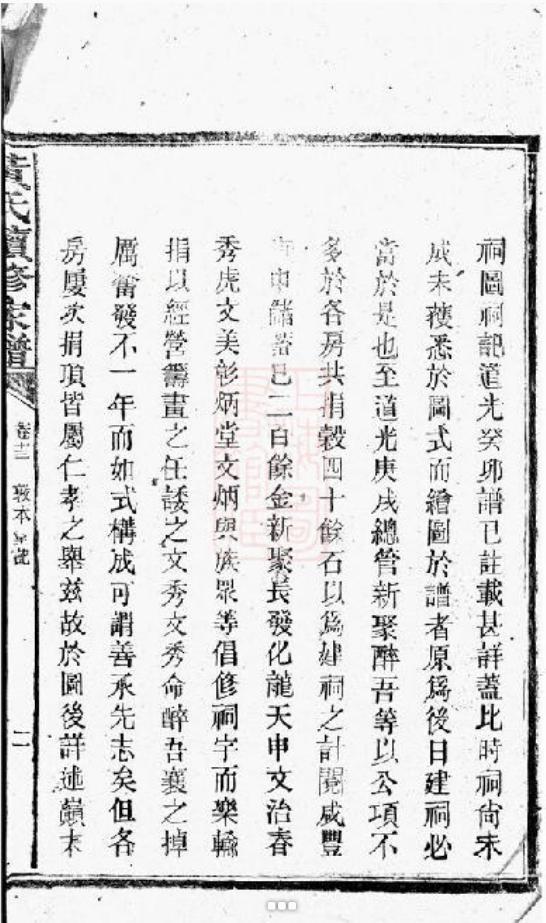 祠圖祠記道光癸卯譜已註載甚詳蓋比時祠尙未
成未獲悉於圖式而繪圖於譜者原爲後日建祠必
當於是也至道光庚戌總管新聚醉吾等以公項不
多於各房共捐穀四十餘石以爲建祠之計閱咸豐
申儲蓄已二百餘金新聚長發化龍天申文治春
秀虎文美彰炳堂文炳與族眾等倡修祠宇而樂輸
指以經營籌畫之任諉之文秀文秀命醉吾襄之掉
厲奮發不一年而如式構成可謂善承先志矣但各
房屢次捐項皆屬仁孝之舉茲故於圖後詳述巔末
黃氏續修家譜
卷十二 敦本
二